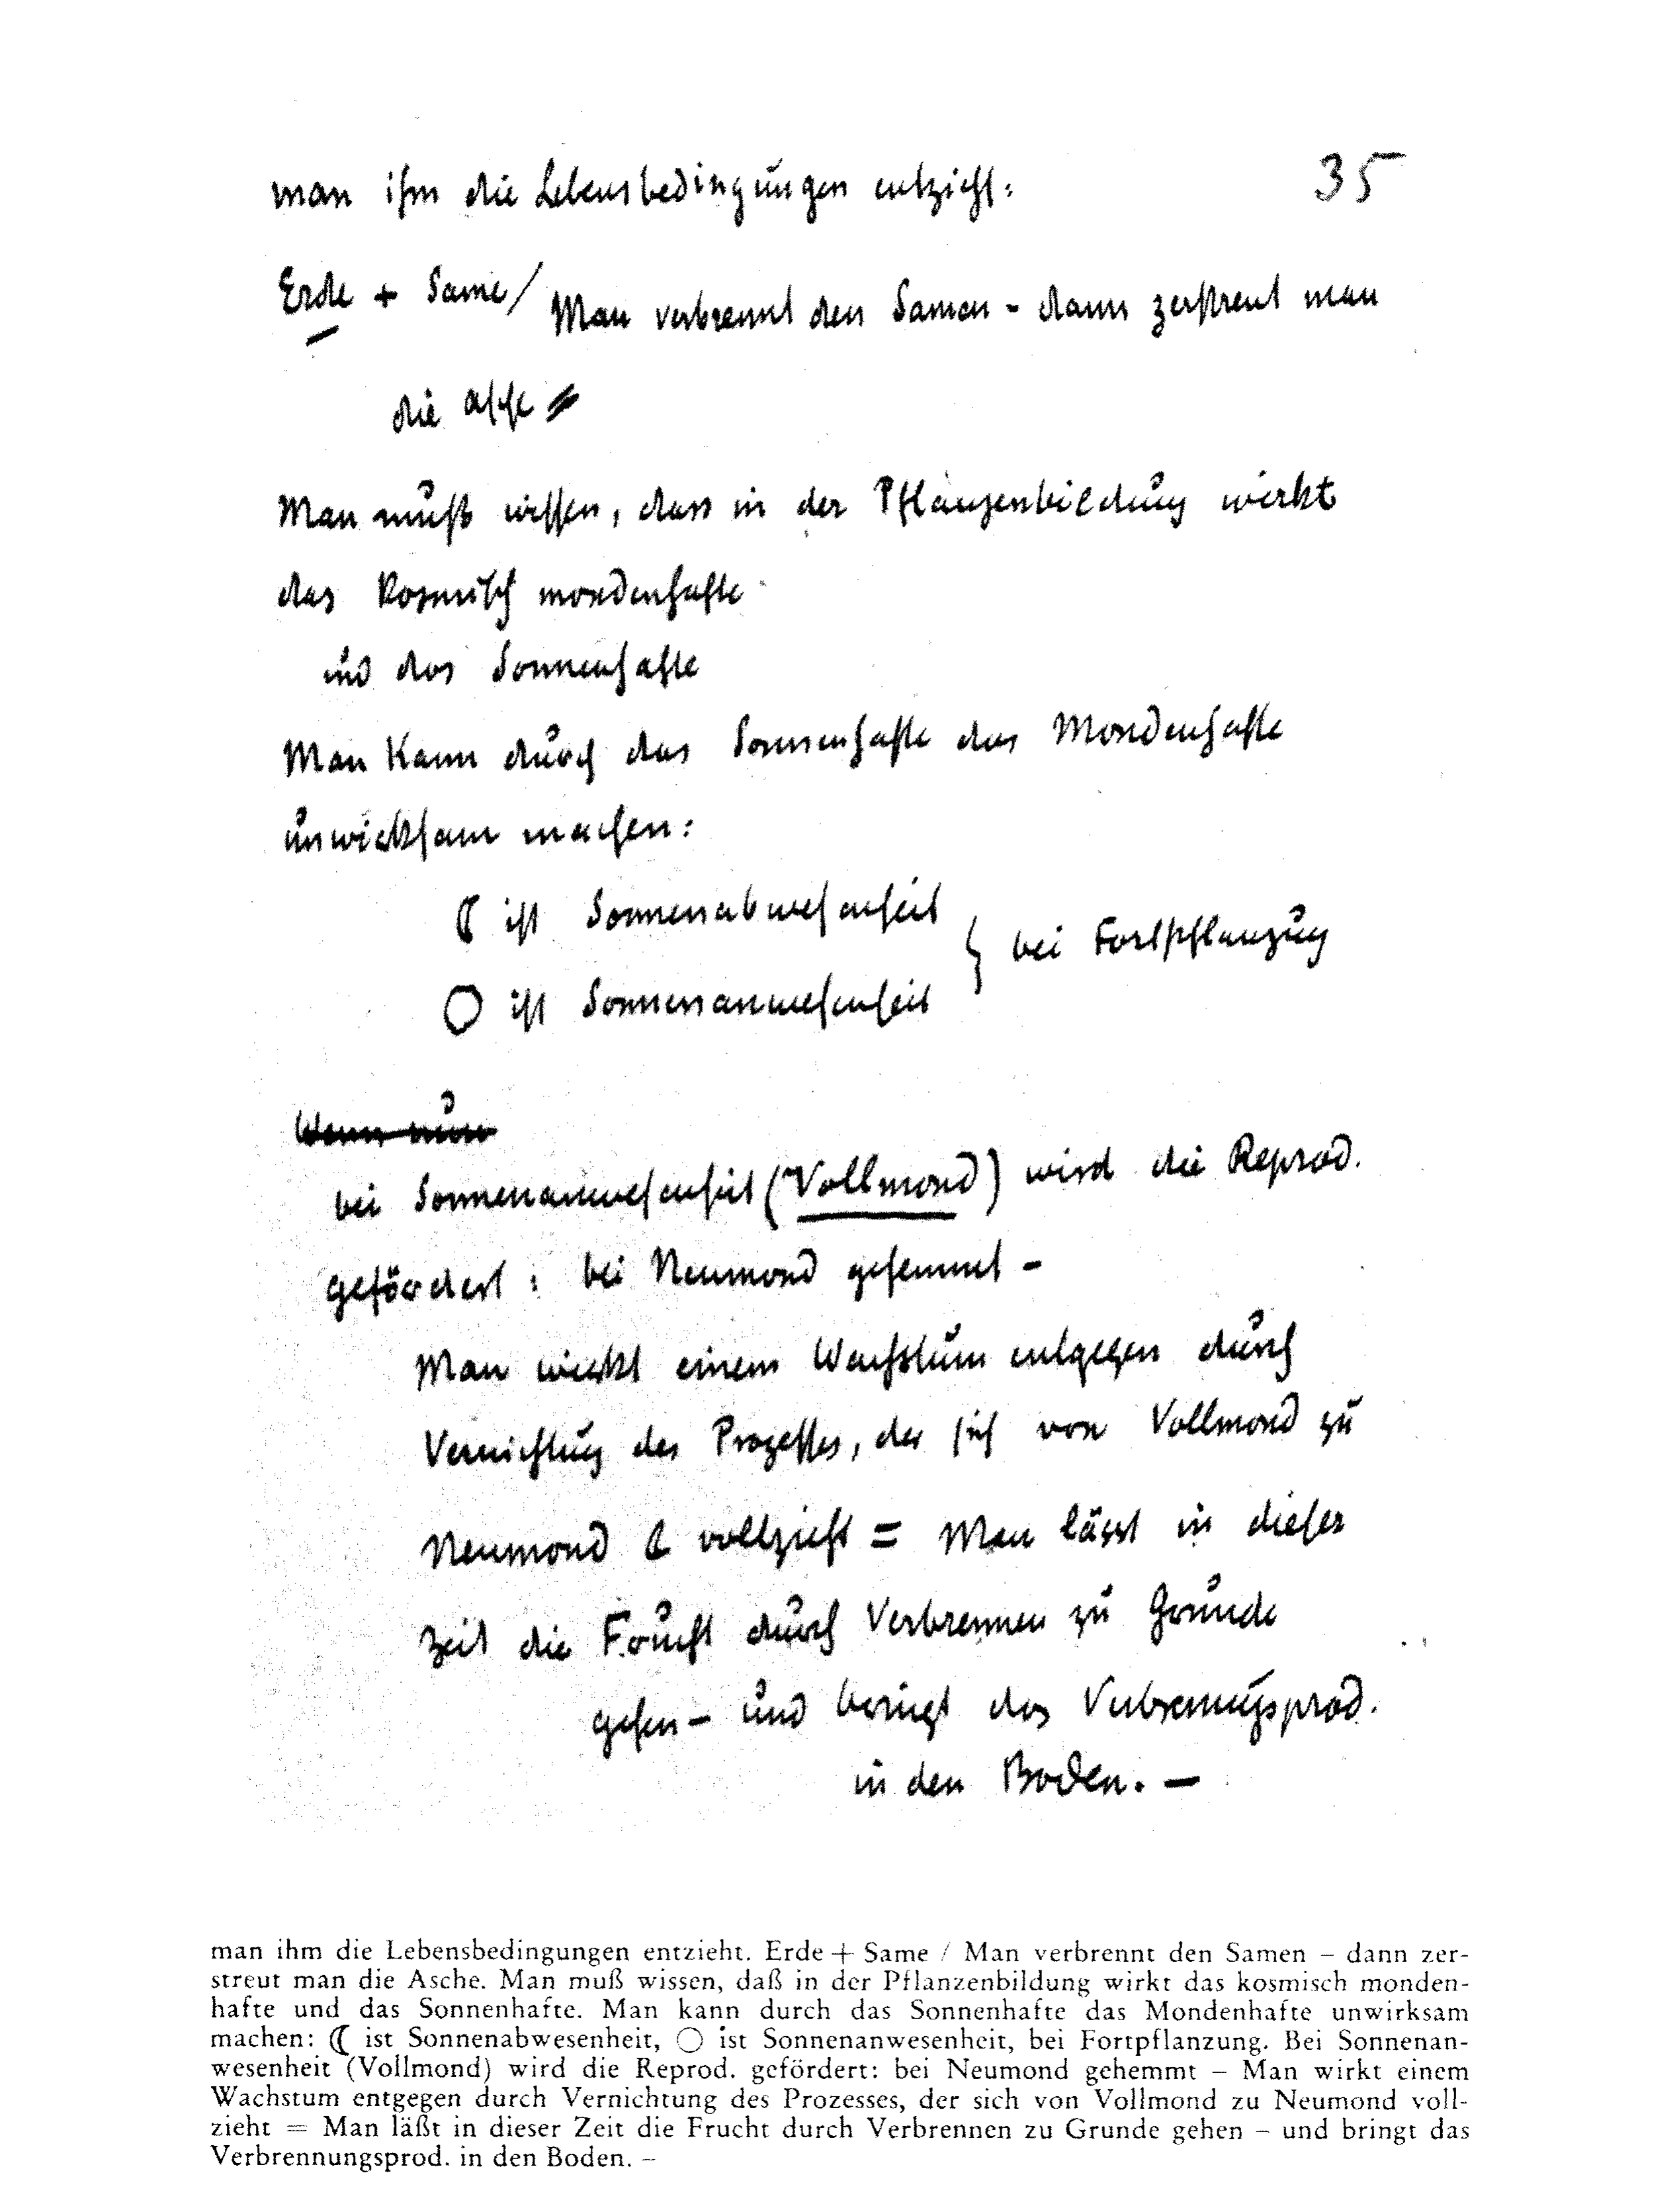 35
man ihm die Lebensbedingungen entzieht:
Erde + Same / Man verbrennt den Samen - dann zerstreut man
die Asche
Man muß wissen, dass in der Pflanzenbildung wirkt
das Kosmisch mondenhafte
und das Sonnenhafte
Man kann durch das Sonnenhafte das Mondenhafte
unwirksam machen:
☾ ist Sonnenabwesenheit
} bei Fortpflanzung
○ ist Sonnenanwesenheit
Wenn nun
bei Sonnenanwesenheit (Vollmond) wird die Reprod.
gefördert: bei Neumond gehemmt -
Man wirkt einem Wachstum entgegen durch
Vernichtung des Prozesses, der sich von Vollmond zu
Neumond ☾ vollzieht = Man lässt in dieser
Zeit die Frucht durch Verbrennen zu Grunde
gehen - und bringt das Verbrennungsprod.
in den Boden. -
man ihm die Lebensbedingungen entzieht. Erde + Same / Man verbrennt den Samen – dann zer-
streut man die Asche. Man muß wissen, daß in der Pflanzenbildung wirkt das kosmisch monden-
hafte und das Sonnenhafte. Man kann durch das Sonnenhafte das Mondenhafte unwirksam
machen: ☾ ist Sonnenabwesenheit, ○ ist Sonnenanwesenheit, bei Fortpflanzung. Bei Sonnenan-
wesenheit (Vollmond) wird die Reprod. gefördert: bei Neumond gehemmt – Man wirkt einem
Wachstum entgegen durch Vernichtung des Prozesses, der sich von Vollmond zu Neumond voll-
zieht = Man läßt in dieser Zeit die Frucht durch Verbrennen zu Grunde gehen – und bringt das
Verbrennungsprod. in den Boden. –